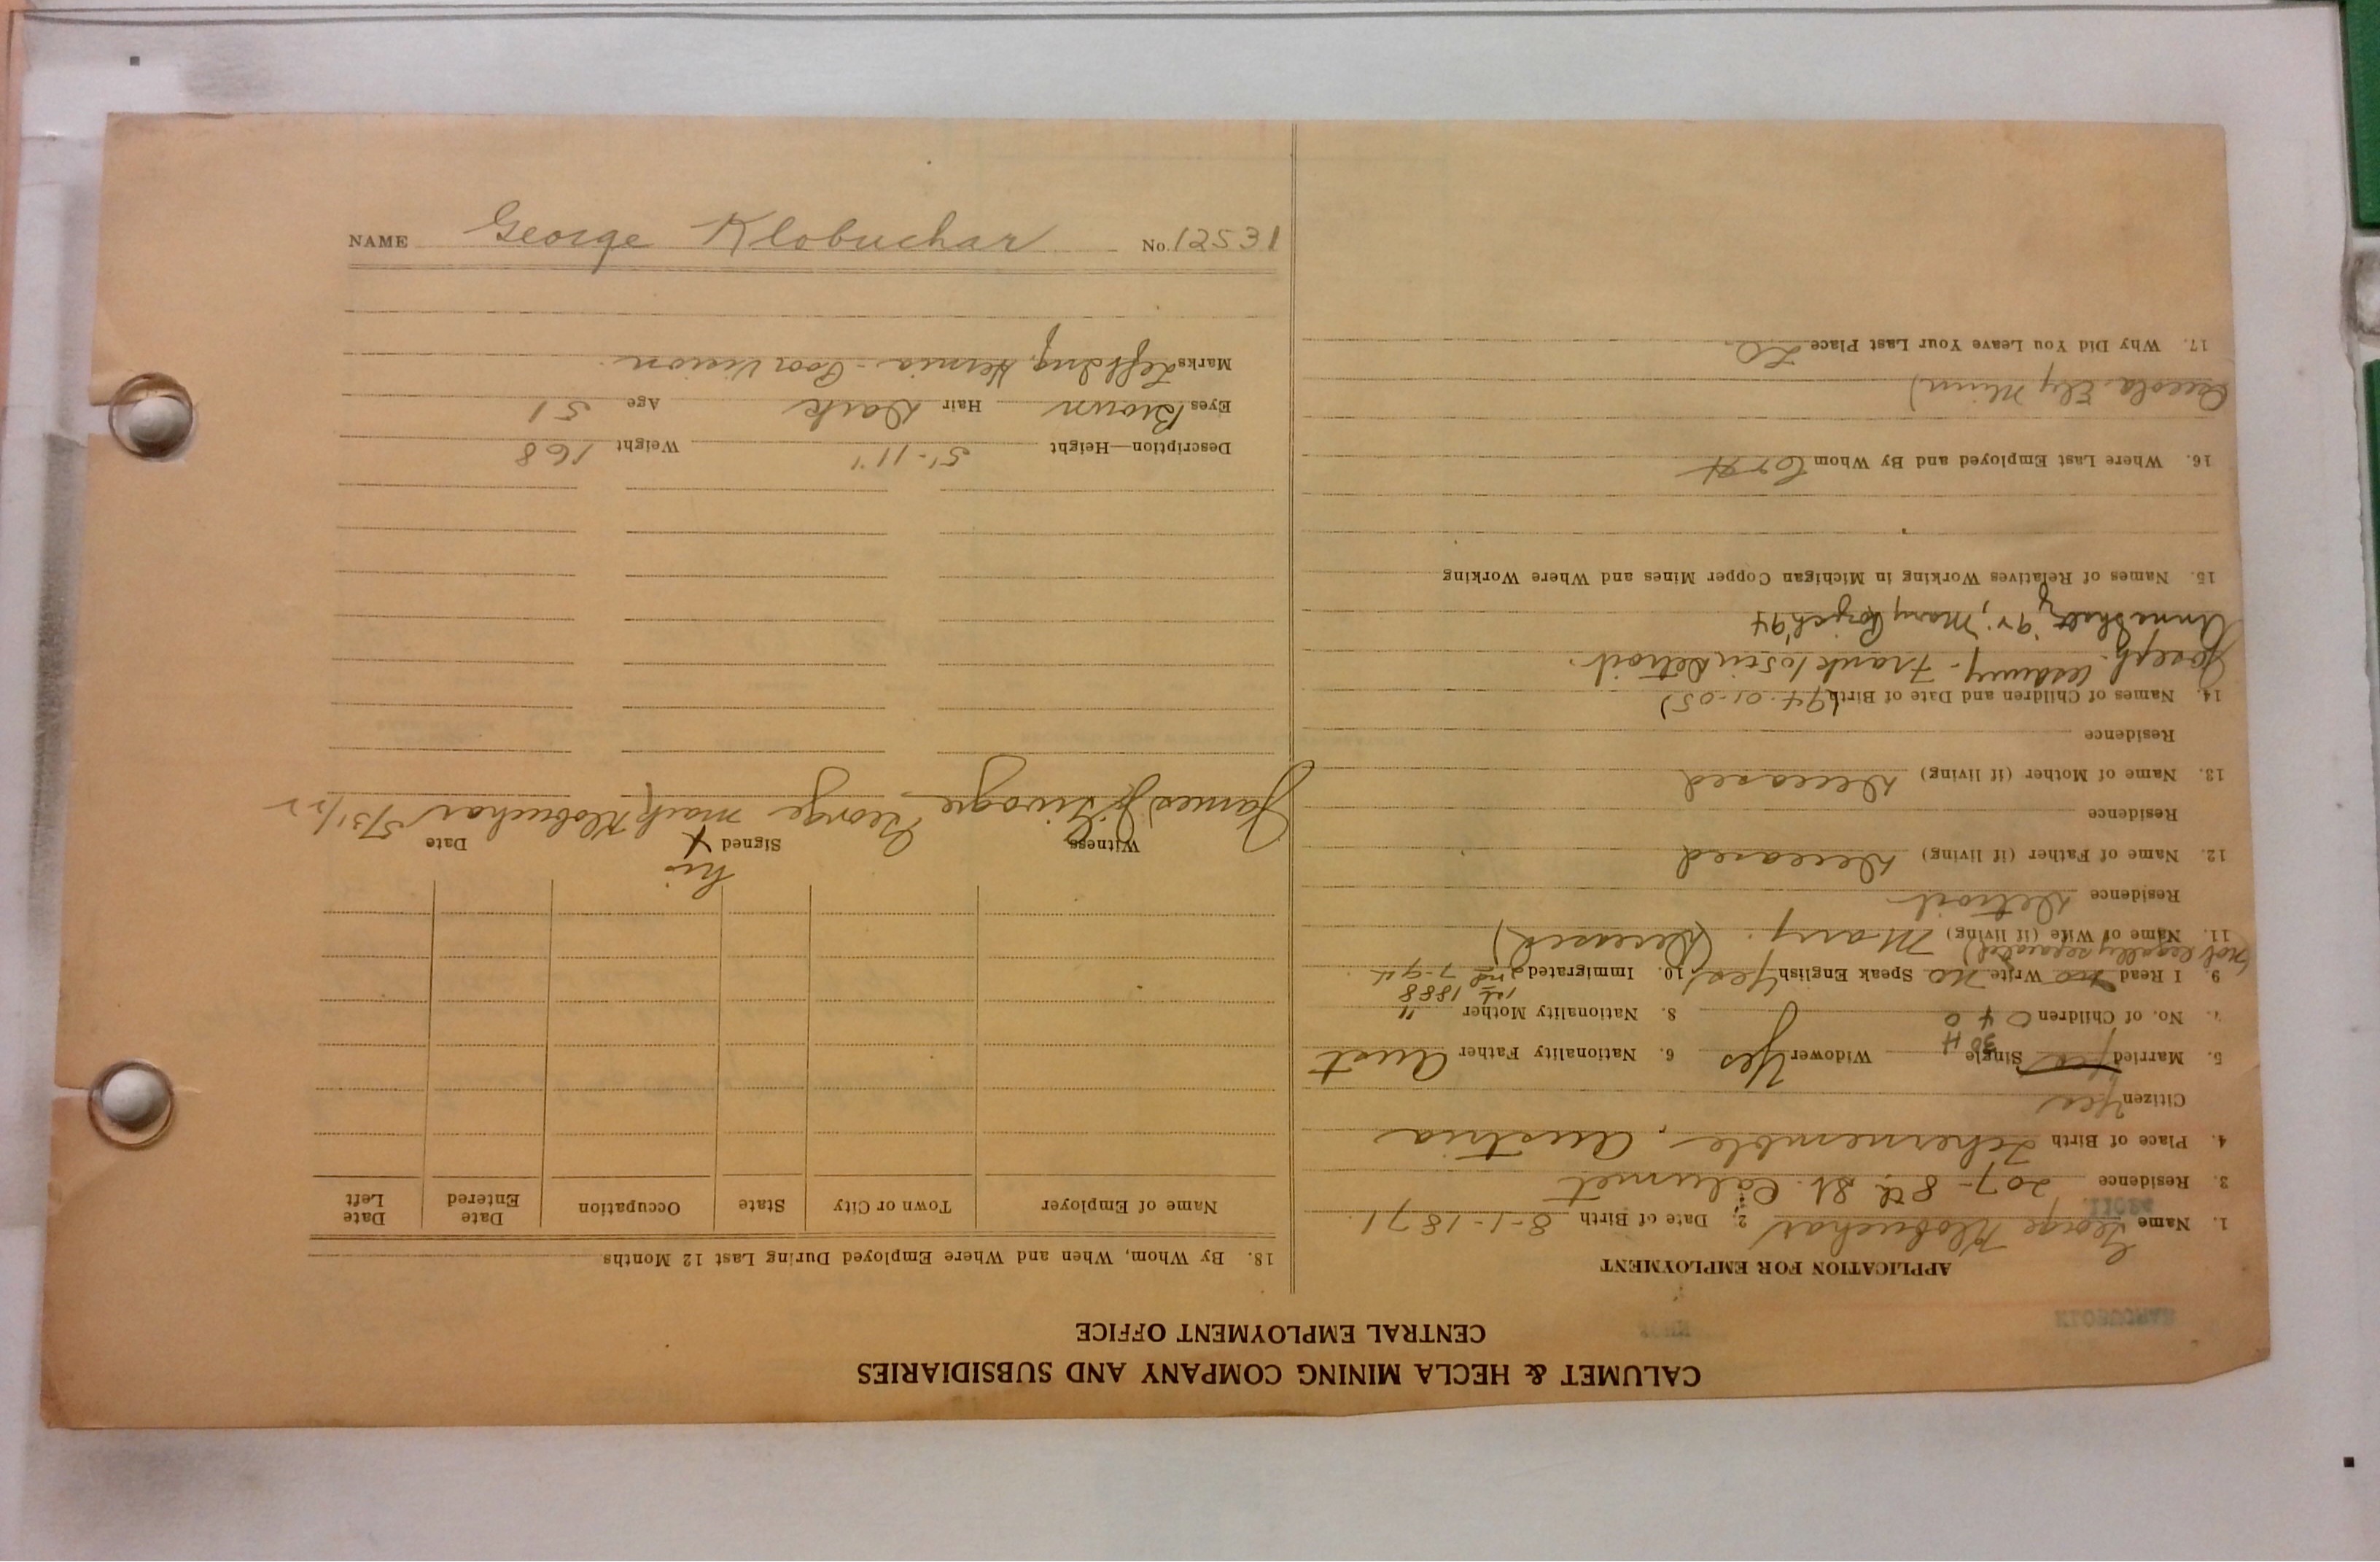 CALUMET & HECLA MINING COMPANY AND SUBSIDIARIES
CENTRAL EMPLOYMENT OFFICE
APPLICATION FOR EMPLOYMENT
1. Name George Klobuchar 2. Date of Birth 8-1-1871
11024
3. Residence 207-8th St. Calumet
4. Place of Birth Tchernemble, Austria
Citizen Yes
5. Married Yes Single Widower Yes 6. Nationality Father Aust
7. No. of Children 4 8. Nationality Mother "
1st 1888
9. I Read no Write no Speak English Yes 10. Immigrated 2nd
(not legally separated)
11. Name of Wife (if living) Mary. (Deceased)
Residence Detroit
12. Name of Father (if living) Deceased
Residence
13. Name of Mother (if living) Deceased
Residence
14. Names of Children and Date of Birth (94-01-05)
Joseph Frank 105 in Detroit.
Anna Mary '94
15. Names of Relatives Working in Michigan Copper Mines and Where Working
16. Where Last Employed and By Whom C & H
Ely Minn)
17. Why Did You Leave Your Last Place LO
18. By Whom, When and Where Employed During Last 12 Months
Name of Employer Town or City State Occupation Date Entered Date Left
his
Witness Signed X Date
James George mark Klobuchar 5/31/22
Description—Height 5'-11" Weight 168
Eyes Brown Hair Dark Age 51
Marks Left Ing. Hernia - Poor Vision
NAME George Klobuchar No. 12531